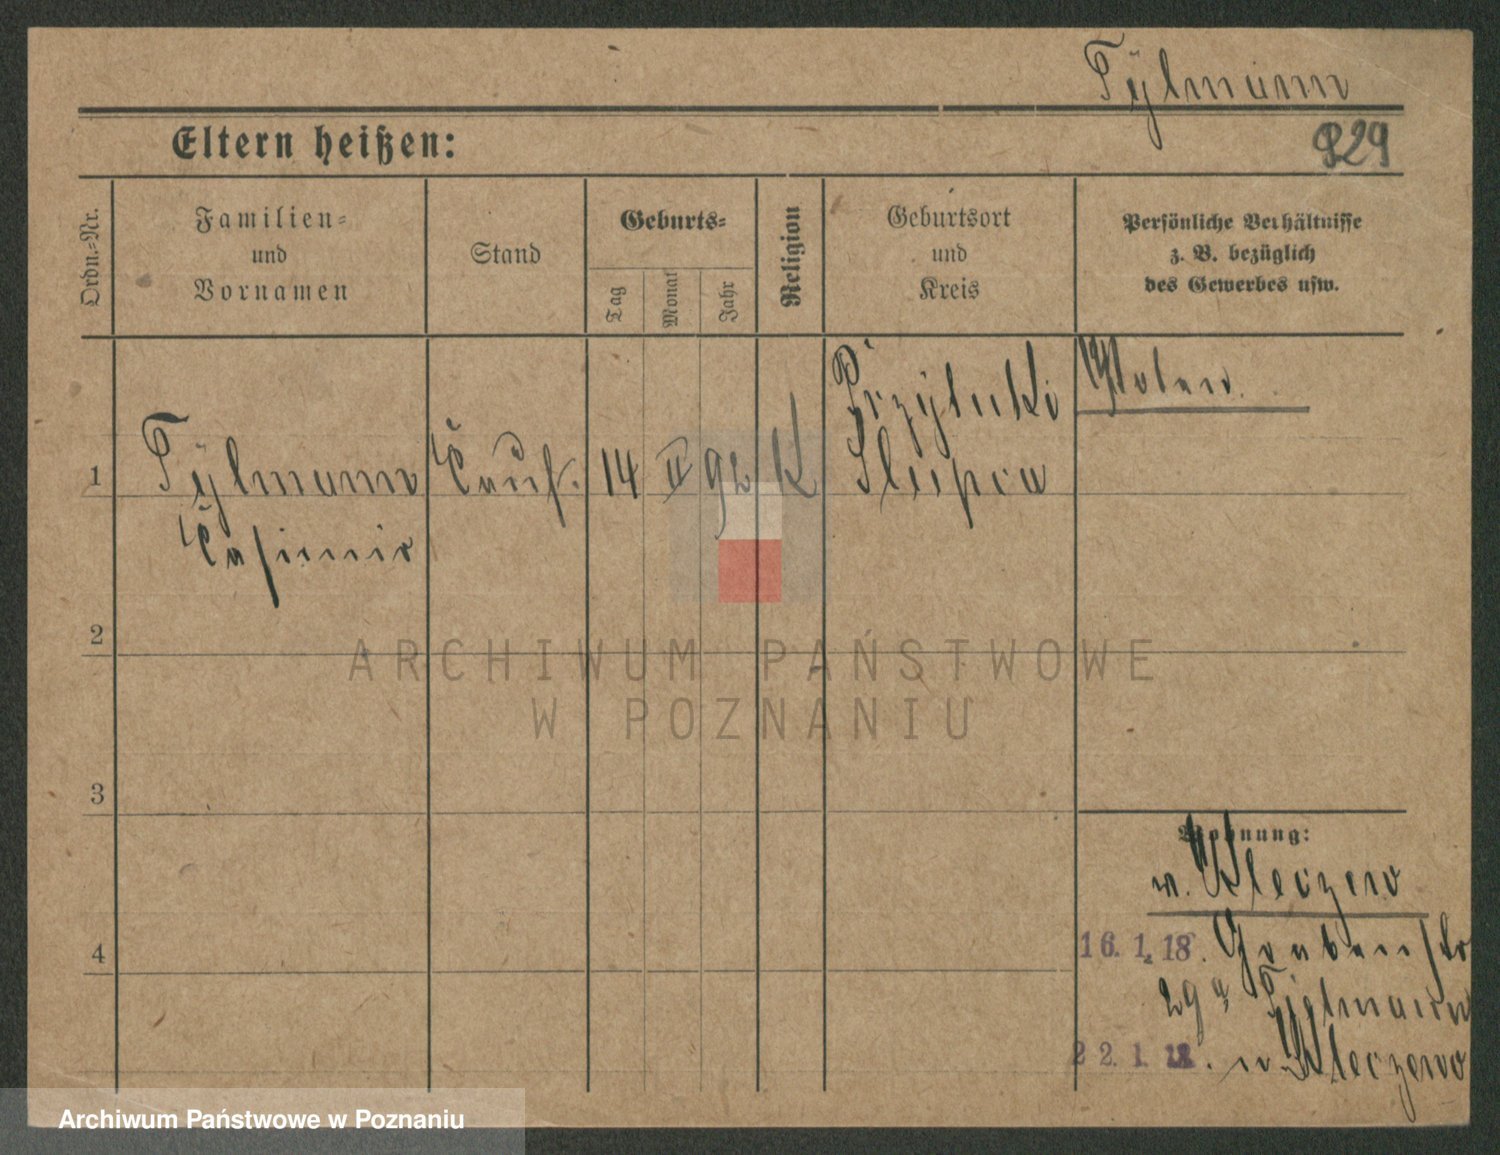 Tÿlmann
Eltern heißen:
929
Ordn.-Nr.
Familien-
und
Vornamen
Stand
Geburts-
Tag
Monat
Jahr
Religion
Geburtsort
und
Kreis
Persönliche Verhältnisse
z. B. bezüglich
des Gewerbes usw.
1
Tÿlmann
Casimir
14
II
92
K
Przÿbuki
Slupca
Polen.
2
3
4
Wohnung:
n. Kleczew
16.1.18. Grabenstr
29a Tÿlmann
22.1.18. n Kleczewo
ARCHIWUM PAŃSTWOWE
W POZNANIU
Archiwum Państwowe w Poznaniu